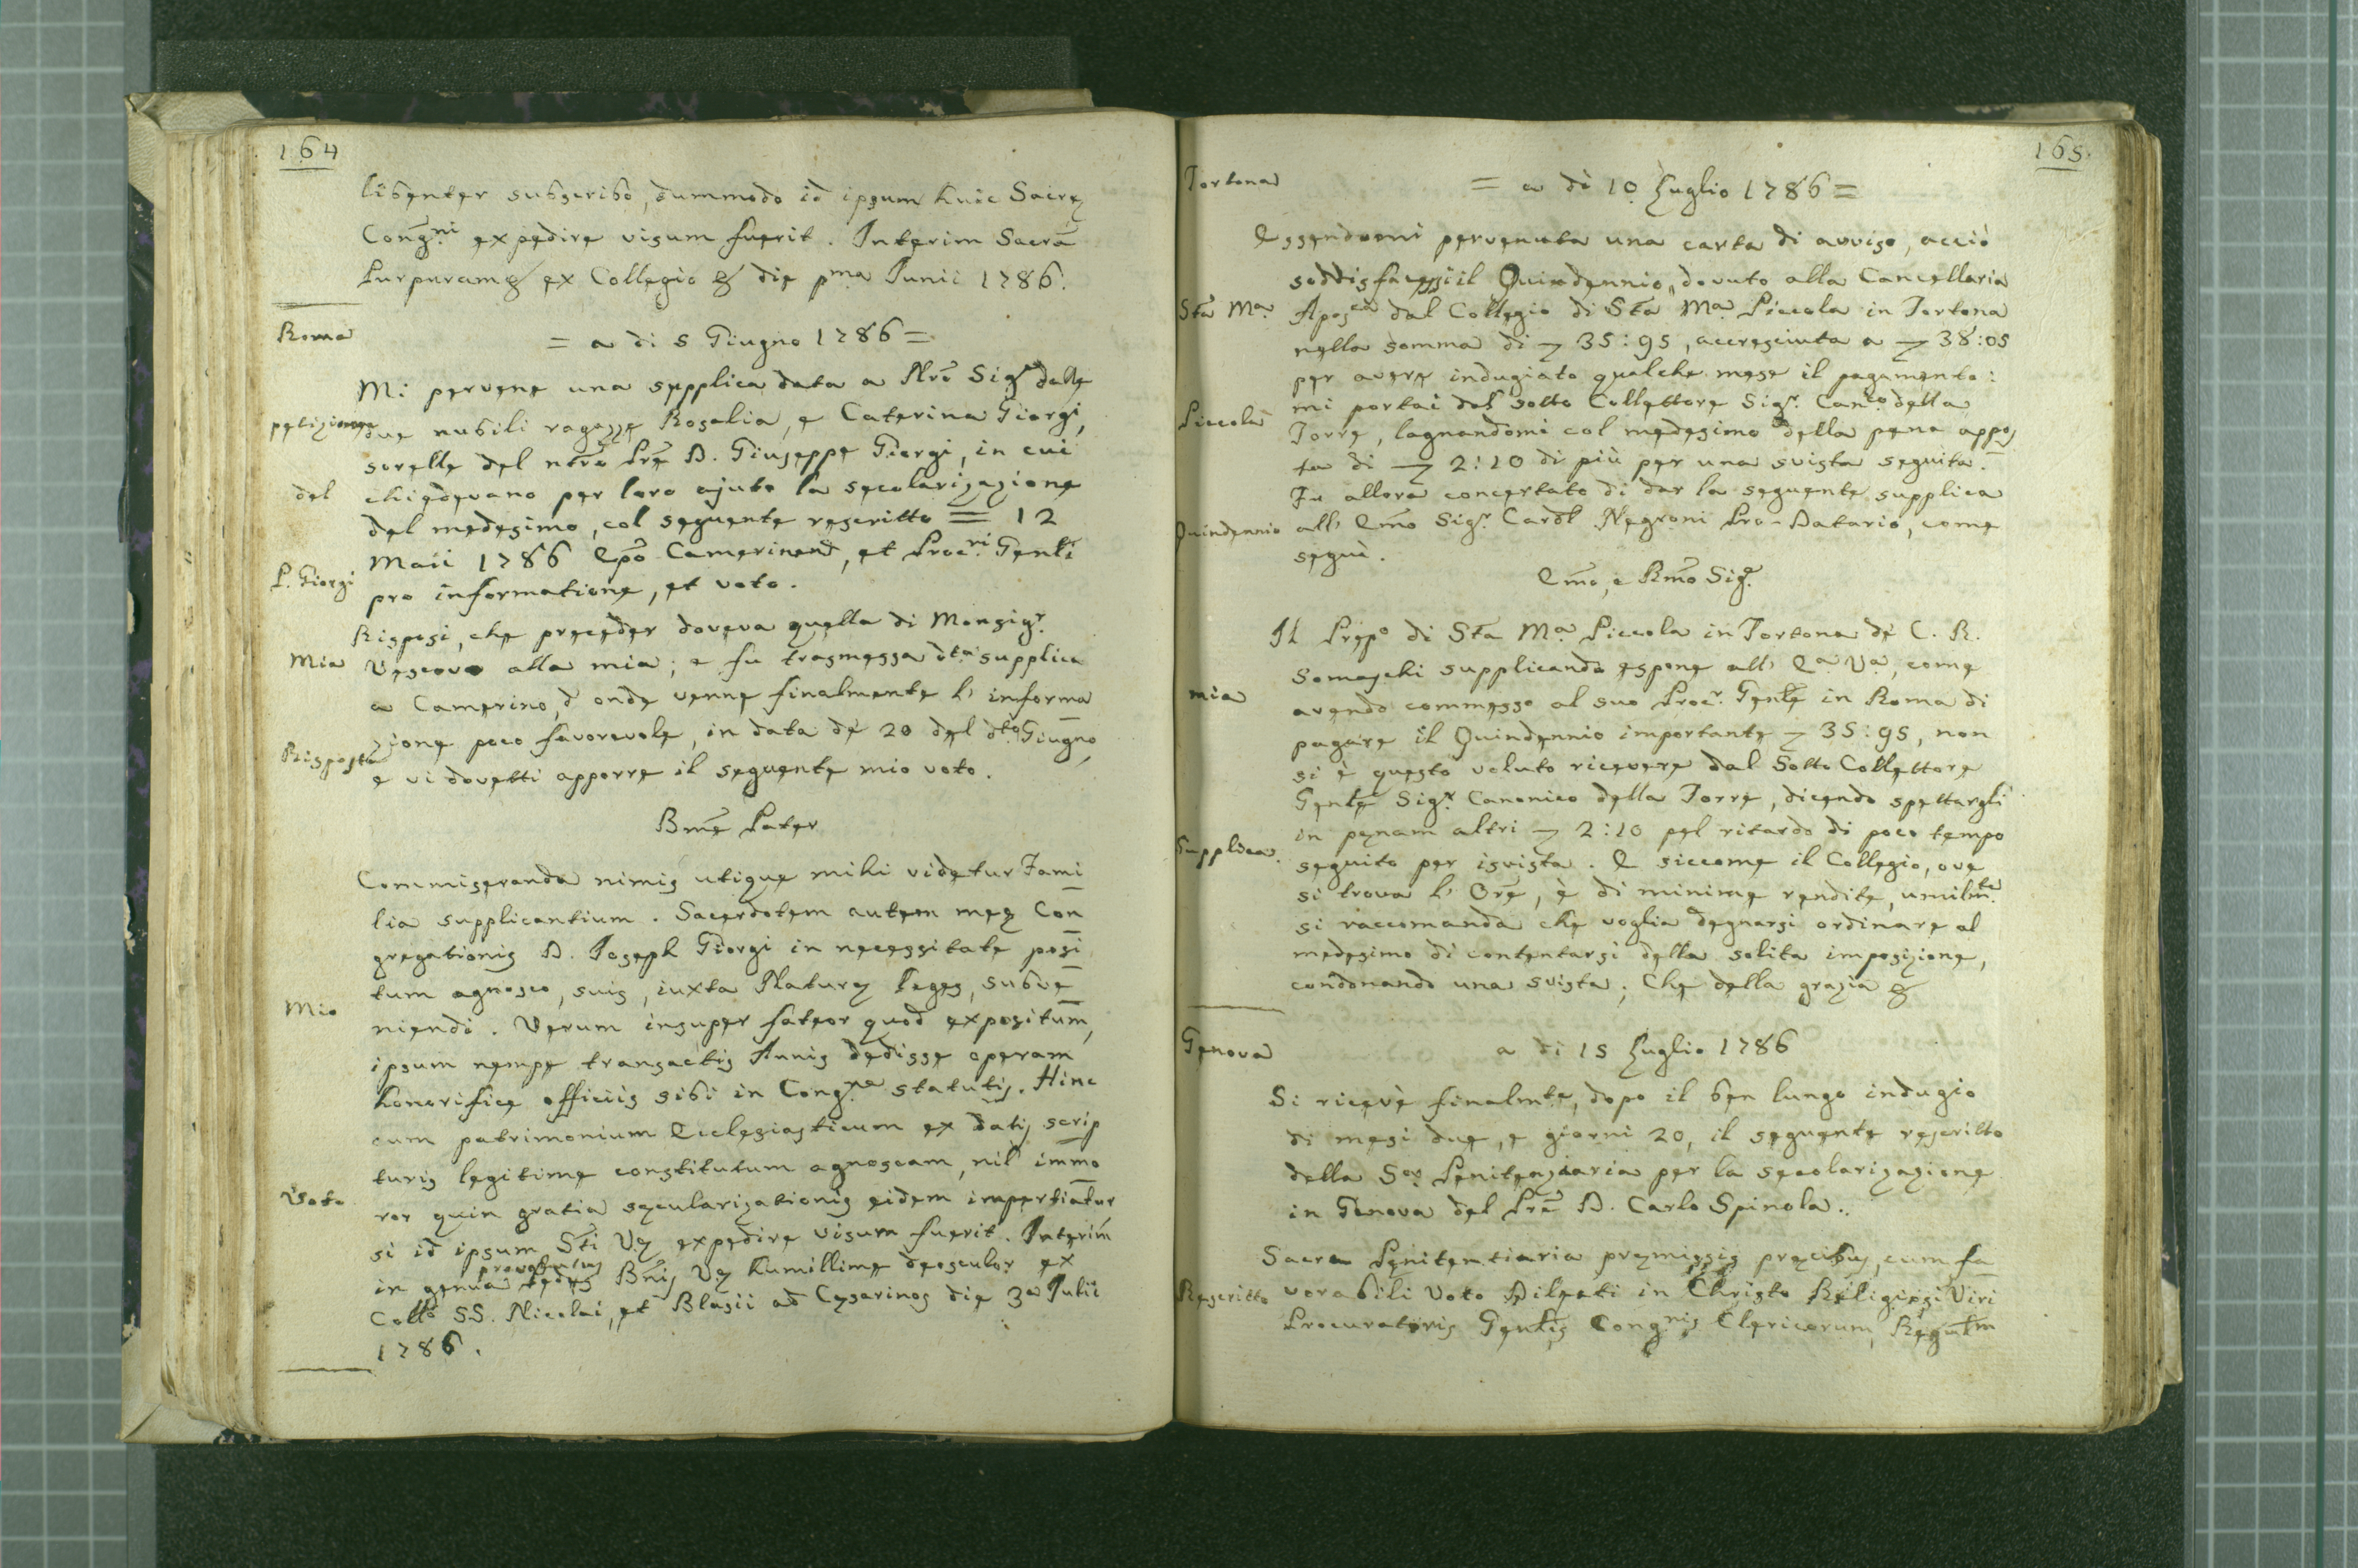 164
libenter subscribo, dummodo id ipsum huic Sacrę
Congni expedire visum fuerit. Interim Sacrā
Purpuram & ex Collegio & die pma Junii 1786.
Roma
= a di 5 Giugno 1786 =
Mi pervene una supplica data a Nrō Sigr dalle
petizione
due nubili ragazze Rosalia, e Caterina Giorgi,
sorelle del ntrō Prē D. Giuseppe Giorgi, in cui
del
chiedevano per loro ajuto la secolarizazione
del medesimo, col seguente rescritto = 12
Maii 1786 Epō Camerinen, et Procri Genli
P. Giorgi
pro informatione, et voto.
Risposi, che preceder doveva quella di Monsigr.
Mia
Vescovo alla mia; e fu trasmessa dta supplica
a Camerino, d'onde venne finalmente l'informa
zione poco favorevole, in data de' 20 del dto Giugno,
Risposta
e vi dovetti apporre il seguente mio voto.
Bmē Pater
Commiseranda nimis utique mihi videtur Fami
lia supplicantium. Sacerdotem autem meę Con
gregationis D. Joseph Giorgi in necessitate posi
tum agnosco, suis, iuxta Naturę leges, subve
Mio
niendi. Verum insuper fateor quod expositum,
ipsum nempe transactis Annis dedisse operam
honorifice officiis sibi in Congne statutis. Hinc
cum patrimonium Ecclesiasticum ex datis scrip
turis legitime constitutum agnoscam, nil immo
Voto
ror quin gratia sęcularizationis eidem impertiatur
si id ipsum Sti Vę expedire visum fuerit. Interim
provolutus
in genua pedes Bnis Vę humillime deosculor ex
Collo SS. Nicolai, et Blasii ad Cęsarinos die 3a Julii
1786.
165.
Tortona
= a di 10 Luglio 1786 =
Essendomi pervenuta una carta di avviso, acciò
soddisfacessi il Quindennio, dovuto alla Cancellaria
Sta Ma
Aposca dal Collegio di Sta Ma Piccola in Tortona
nella somma di 35:95, accresciuta a 38:05
per avere indugiato qualche mese il pagamento:
mi portai dal sotto Collettore Sigr. Canco della
Piccola
Torre, lagnandomi col medesimo della pena appos
ta di 2:10 di più per una svista seguita.
Fu allora concertato di dar la seguente supplica
Quindennio
all' Emō Sigr. Cardl Negroni Pro-Datario, come
seguè.
Emō, e Rmō Sigr.
Il Prepo di Sta Ma Piccola in Tortona de' C. R.
Somaschi supplicando espone all' Ea Va, come
mia
avendo commesso al suo Procr. Genle in Roma di
pagare il Quindennio importante 35:95, non
si è questo voluto ricevere dal Sotto Collettore
Genle Sigr. Canonico della Torre, dicendo spettargli
in pęnam altri 2:10 pel ritardo di poco tempo
Supplica.
seguito per isvista. E siccome il Collegio, ove
si trova l' Orē, è di minime rendite, umilmte
si raccomanda che voglia degnarsi ordinare al
medesimo di contentarsi della solita imposizione,
condonando una svista; Che della grazia &
Genova
a di 15 Luglio 1786
Si ricevè finalmte, dopo il ben lungo indugio
di mesi due, e giorni 20, il seguente rescritto
della Sa Penitenziaria per la secolarizazione
in Genova del Prē D. Carlo Spinola.
Sacra Penitentiaria pręmissis pręcibus, cum fa
Rescritto
vorabili Voto Dilecti in Christo Religiosi Viri
Procuratoris Genlis Congnis Clericorum Regulm